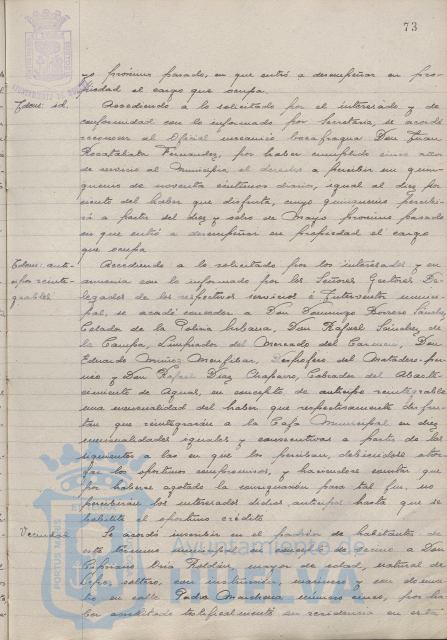 73
yo próximo pasado, en que entró a desempeñar en pro-
piedad el cargo que ocupa.
Idem: id. Accediendo a lo solicitado por el interesado y de
conformidad con lo informado por Secretaría, se acordó
reconocer al Oficial mecánico Don Juan
Fernández, por haber cumplido cinco años
de servicio al Municipio, el derecho a percibir un quin-
quenio de noventa céntimos diarios, igual al diez por
ciento del haber que disfruta, cuyo quinquenio percibi-
rá a partir del diez y ocho de Mayo próximo pasado
en que entró a desempeñar en propiedad el cargo
que ocupa
Idem: anti-
cipos reinte-
grables
Accediendo a lo solicitado por los interesados y en
armonía con lo informado por los Señores Gestores De-
legados de los respectivos servicios e Interventor munici-
pal, se acordó conceder a Don Domingo Borrero Sánchez,
Celador de la Policía Urbana, Don Rafael Sánchez de
la Campa, Limpiador del Mercado del Carmen, Don
Eduardo Muñoz Menfibar, del Matadero
y Don Rafael Díaz Chaparro, Cobrador del Abaste-
cimiento de Aguas, en concepto de anticipo reintegrable
una mensualidad del haber que respectivamente disfru-
tan que reintegrarán a la Caja Municipal en diez
mensualidades iguales y consecutivas a partir de las
siguientes a las en que las perciban, debiéndose otor-
gar los oportunos compromisos, y haciéndose constar que
por haberse agotado la consignación para tal fin, no
percibirán los interesados dichos anticipos hasta que se
habilite el oportuno crédito
Vecindad Se acordó inscribir en el padrón de habitantes de
este término municipal en concepto de vecino a Don
Oria Roldán, mayor de edad, natural de
Lepe, soltero, con instrucción, marinero y con domici-
lio en calle Padre Marchena número cinco, por ha-
ber acreditado testificalmente su residencia en esta
Ayuntamiento de
PORTUS MARIS